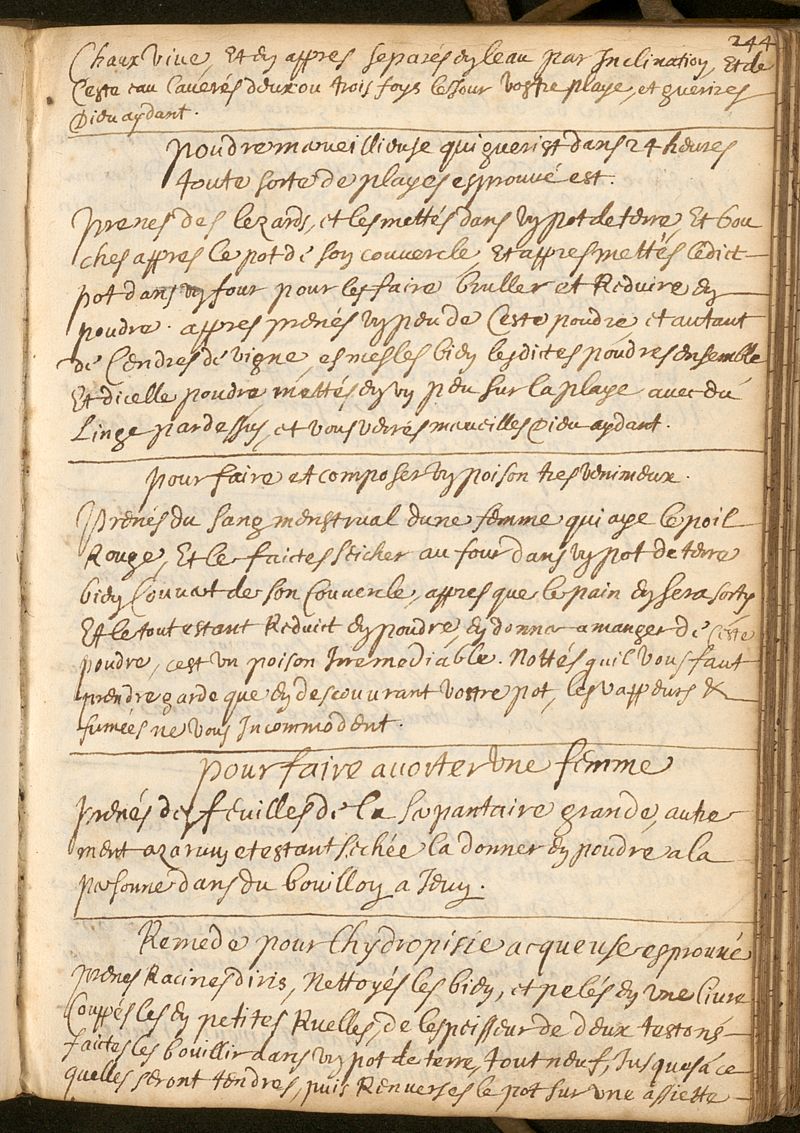 244
Chaux vive, Et en appres separés en leau par Inclination, Et de
Ceste eau laverés deux ou trois foys le Jour vostre playe, et guerires
Dieu aydant.
poudre marveillieuse qui guerist dans 24 heures
toute sorte de playes esprouvé est.
Prenes des lezards, et les mettés dans un pot de terre, Et bou
ches appres le pot de son couvercle Et appres mettés ledict
pot dans un four pour les faire bruller et Reduire en
poudre. appres prenés un peu de Ceste poudre et autant
de Cendres de vigne, et mesles bien lesdictes poudres ensemble
Et dicelle poudre mettés en un peu sur la playe avec du
Linge par dessus, et vous verrés marveilles Dieu aydant.
pour faire et composer un poison tres venimeux.
Prenes du sang menstrual dune femme qui aye le poil
Rouge, Et le faictes seicher au four dans un pot de terre
bien Couvert de son Couvercle, appres que le pain en sera sorty
Et le tout estant Reduict en poudre, en donner a manger de Ceste
poudre, cest un poison Irremediable. Nottés quil vous faut
prendre garde que en descouvrant vostre pot, les vappeurs &
fumées ne vous Incommodent.
pour faire avorter une femme
prenés des feuilles de la serpantaire grande, autre
ment azarum et estant sechée la donner en poudre a la
personne dans du bouillon a Jeun.
Remede pour lhydropisie acqueuse esprouvé
prenes Racines diris, Nettoyés les bien, et pelés en une livre
Couppés les en petites Ruelles, de lespesseur de deux testons
faictes les bouillir dans un pot de terre, tout neuf, Jusques a ce
quelles seront tendres, puis Renverses le pot sur une assiette